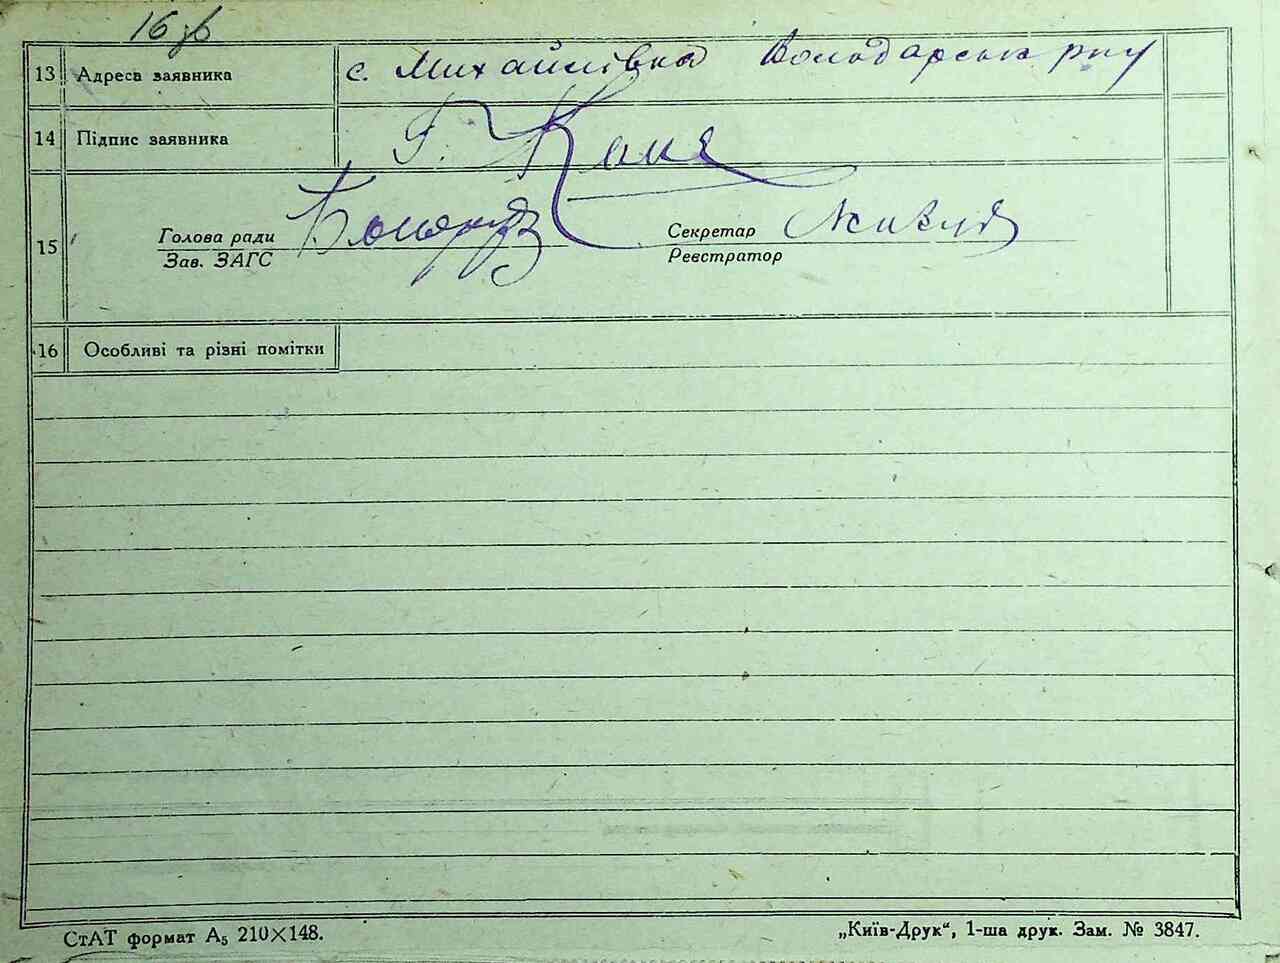 16 зв
13 Адреса заявника с. Михайлівка Володарськ р-ну
14 Підпис заявника Г.
15
Голова ради Секретар
Зав. ЗАГС Реєстратор
16 Особливі та різні помітки
СтАТ формат А5 210×148. „Київ-Друк“, 1-ша друк. Зам. № 3847.